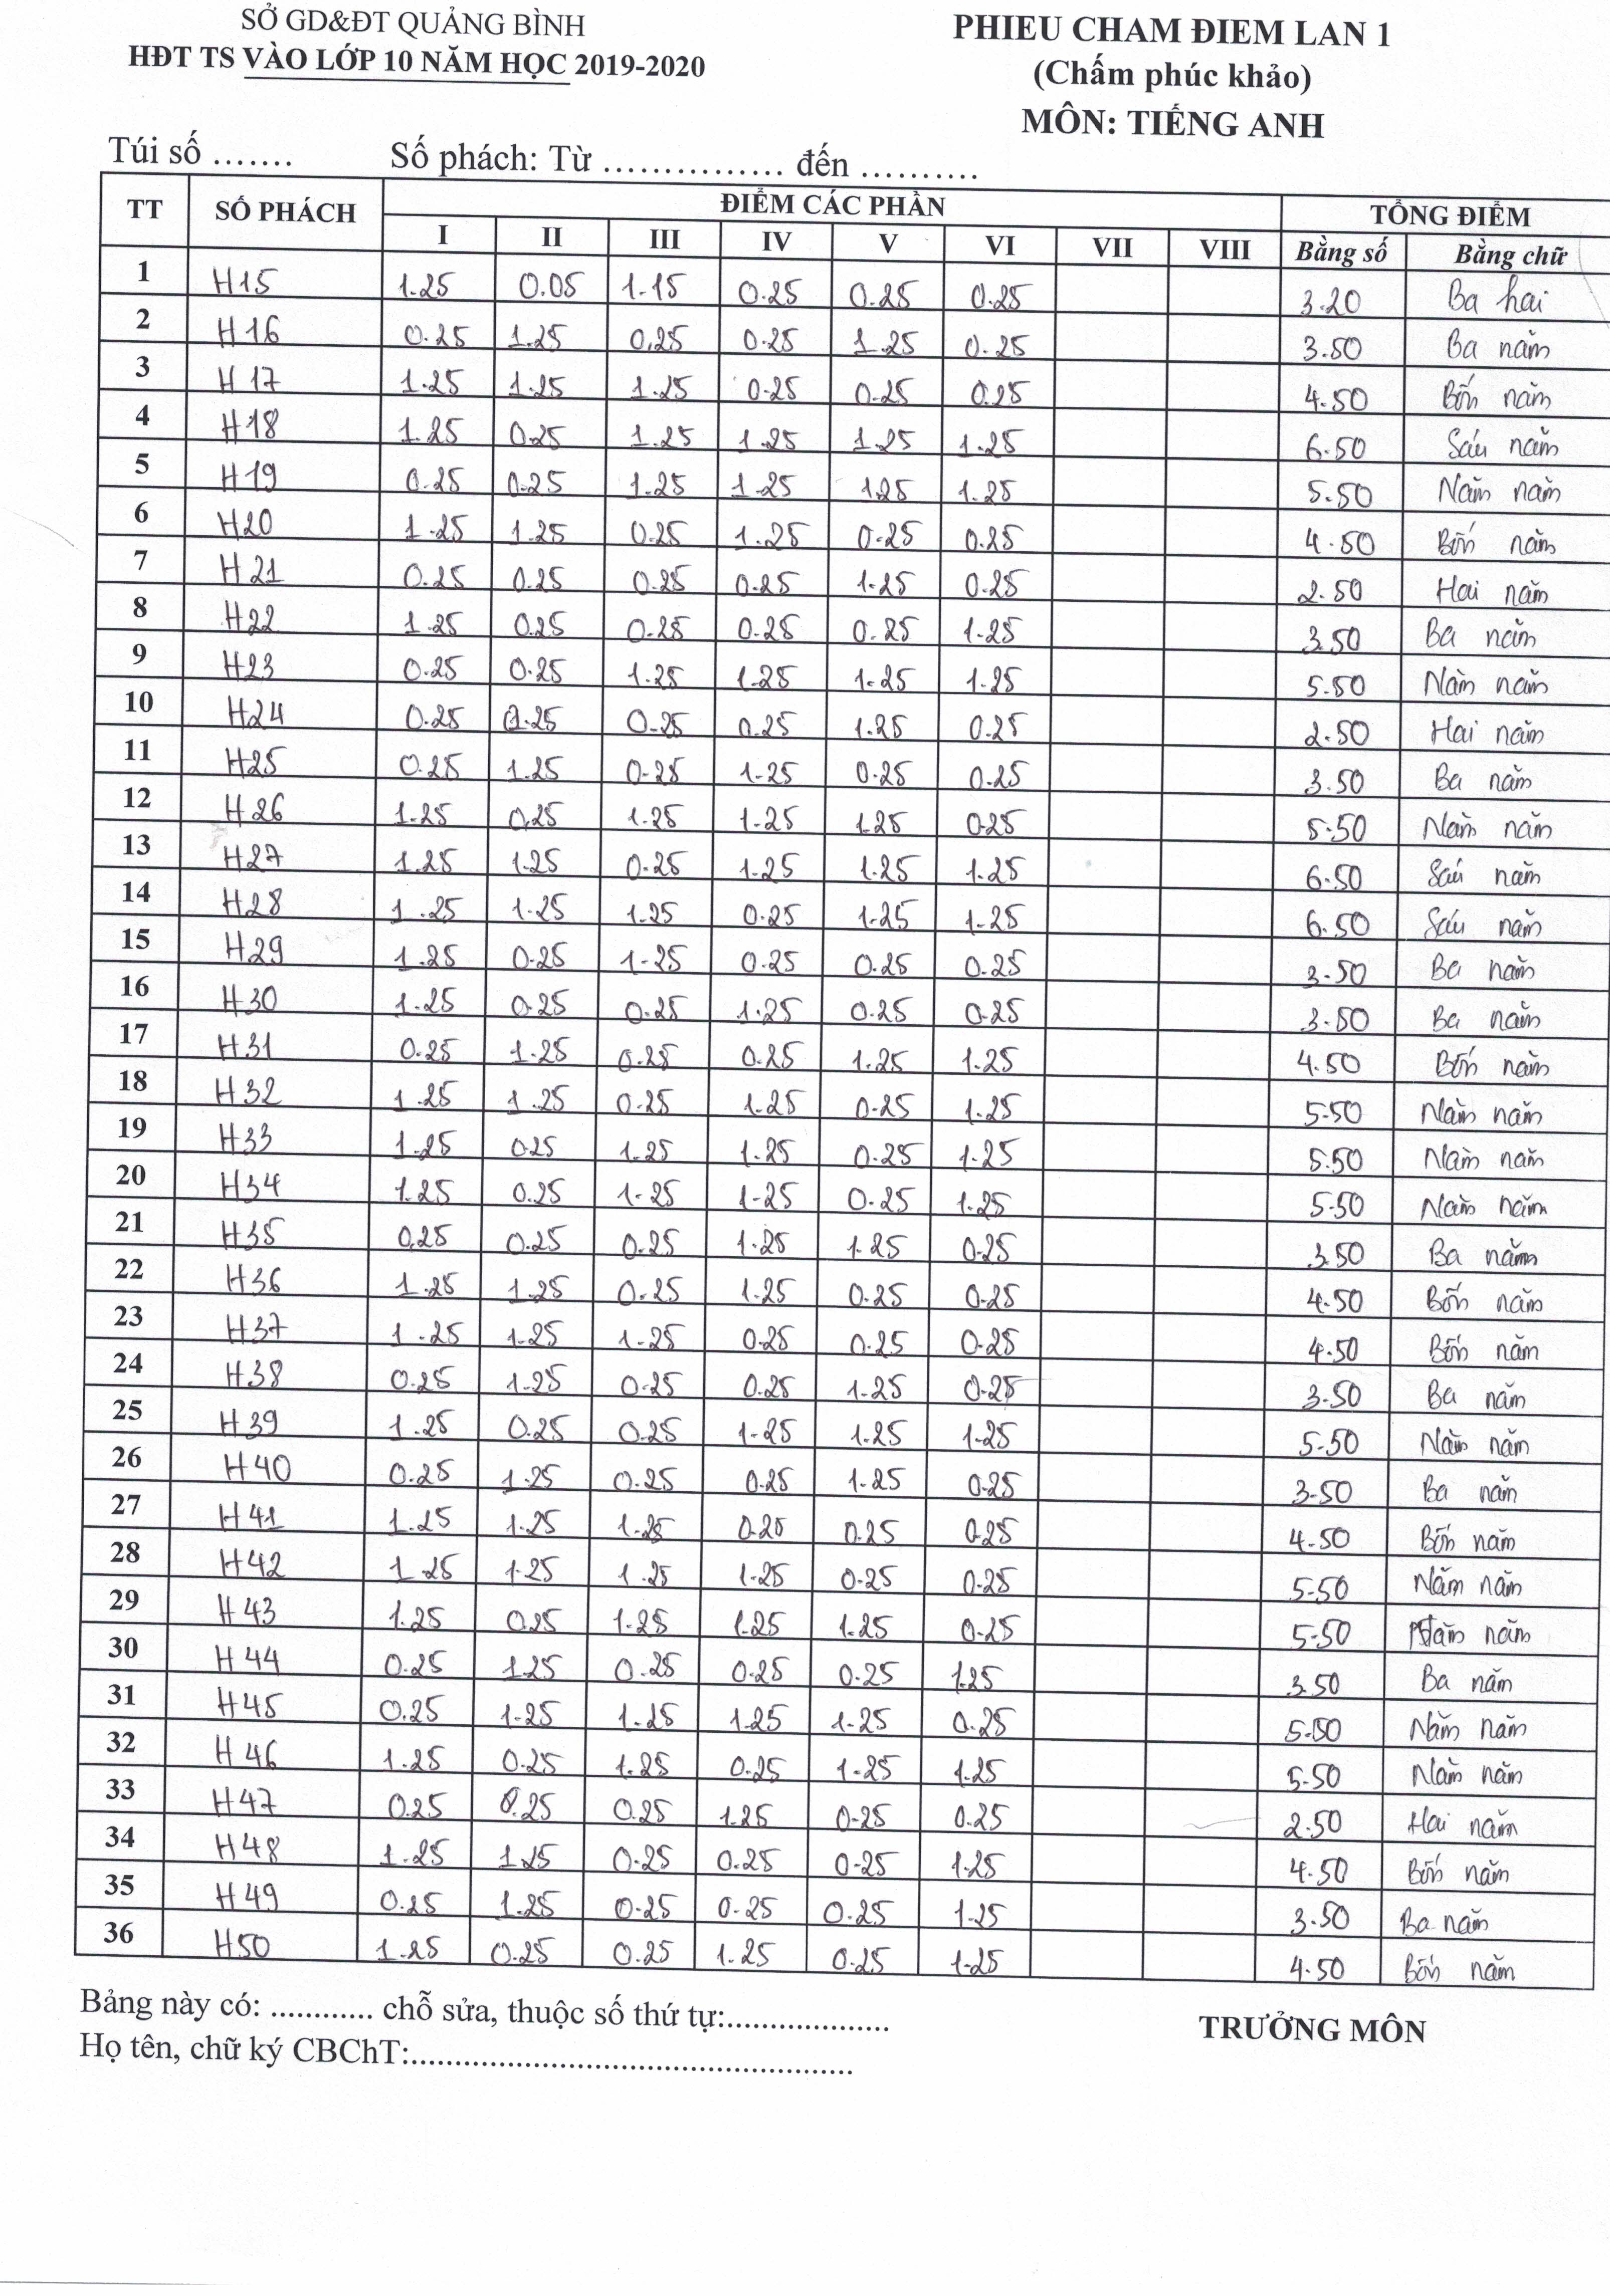 SỞ GD&ĐT QUẢNG BÌNH
HĐT TS VÀO LỚP 10 NĂM HỌC 2019-2020
PHIEU CHAM ĐIEM LAN 1
(Chấm phúc khảo)
MÔN: TIẾNG ANH
Túi số ....... Số phách: Từ ................ đến ..........
TT SỐ PHÁCH ĐIỂM CÁC PHẦN TỔNG ĐIỂM
I II III IV V VI VII VIII Bằng số Bằng chữ
1 H15 1.25 0.05 1.15 0.25 0.25 0.25 3.20 Ba hai
2 H16 0.25 1.25 0.25 0.25 1.25 0.25 3.50 Ba năm
3 H17 1.25 1.25 1.25 0.25 0.25 0.25 4.50 Bốn năm
4 H18 1.25 0.25 1.25 1.25 1.25 1.25 6.50 Sáu năm
5 H19 0.25 0.25 1.25 1.25 1.25 1.25 5.50 Năm năm
6 H20 1.25 1.25 0.25 1.25 0.25 0.25 4.50 Bốn năm
7 H21 0.25 0.25 0.25 0.25 1.25 0.25 2.50 Hai năm
8 H22 1.25 0.25 0.25 0.25 0.25 1.25 3.50 Ba năm
9 H23 0.25 0.25 1.25 1.25 1.25 1.25 5.50 Năm năm
10 H24 0.25 0.25 0.25 0.25 1.25 0.25 2.50 Hai năm
11 H25 0.25 1.25 0.25 1.25 0.25 0.25 3.50 Ba năm
12 H26 1.25 0.25 1.25 1.25 1.25 0.25 5.50 Năm năm
13 H27 1.25 1.25 0.25 1.25 1.25 1.25 6.50 Sáu năm
14 H28 1.25 1.25 1.25 0.25 1.25 1.25 6.50 Sáu năm
15 H29 1.25 0.25 1.25 0.25 0.25 0.25 3.50 Ba năm
16 H30 1.25 0.25 0.25 1.25 0.25 0.25 3.50 Ba năm
17 H31 0.25 1.25 0.25 0.25 1.25 1.25 4.50 Bốn năm
18 H32 1.25 1.25 0.25 1.25 0.25 1.25 5.50 Năm năm
19 H33 1.25 0.25 1.25 1.25 0.25 1.25 5.50 Năm năm
20 H34 1.25 0.25 1.25 1.25 0.25 1.25 5.50 Năm năm
21 H35 0.25 0.25 0.25 1.25 1.25 0.25 3.50 Ba năm
22 H36 1.25 1.25 0.25 1.25 0.25 0.25 4.50 Bốn năm
23 H37 1.25 1.25 1.25 0.25 0.25 0.25 4.50 Bốn năm
24 H38 0.25 1.25 0.25 0.25 1.25 0.25 3.50 Ba năm
25 H39 1.25 0.25 0.25 1.25 1.25 1.25 5.50 Năm năm
26 H40 0.25 1.25 0.25 0.25 1.25 0.25 3.50 Ba năm
27 H41 1.25 1.25 1.25 0.25 0.25 0.25 4.50 Bốn năm
28 H42 1.25 1.25 1.25 1.25 0.25 0.25 5.50 Năm năm
29 H43 1.25 0.25 1.25 1.25 1.25 0.25 5.50 Năm năm
30 H44 0.25 1.25 0.25 0.25 0.25 1.25 3.50 Ba năm
31 H45 0.25 1.25 1.25 1.25 1.25 0.25 5.50 Năm năm
32 H46 1.25 0.25 1.25 0.25 1.25 1.25 5.50 Năm năm
33 H47 0.25 0.25 0.25 1.25 0.25 0.25 2.50 Hai năm
34 H48 1.25 1.25 0.25 0.25 0.25 1.25 4.50 Bốn năm
35 H49 0.25 1.25 0.25 0.25 0.25 1.25 3.50 Ba năm
36 H50 1.25 0.25 0.25 1.25 0.25 1.25 4.50 Bốn năm
Bảng này có: ............ chỗ sửa, thuộc số thứ tự:...................
TRƯỞNG MÔN
Họ tên, chữ ký CBChT:....................................................